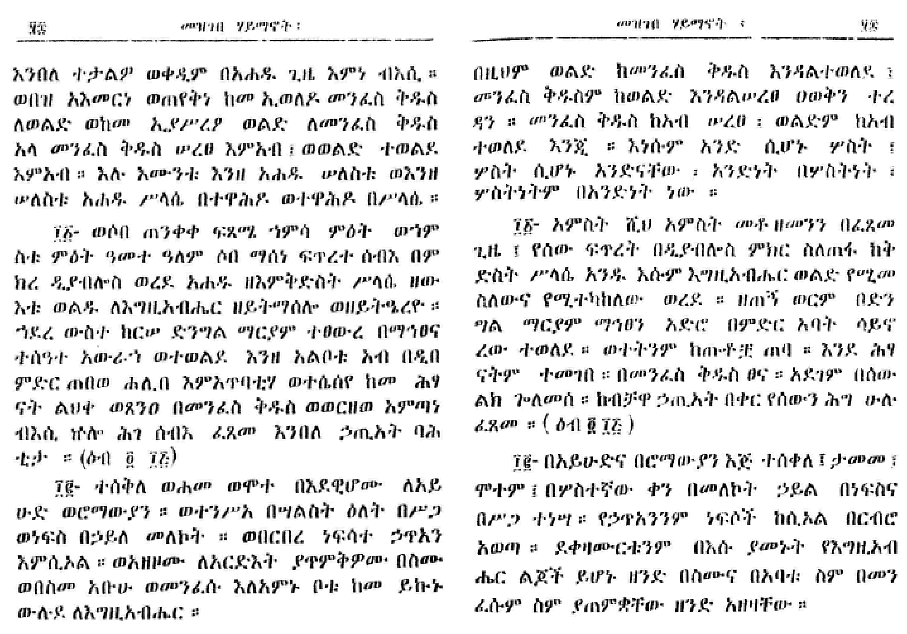 ፶፮ መዝገበ ሃይማኖት ፡
እንበለ ተታልዎ ወቀዲም በአሐዱ ጊዜ እምነ ብእሲ ።
ወበዝ አእመርነ ወጠየቅነ ከመ ኢወለዶ መንፈስ ቅዱስ
ለወልድ ወከመ ኢያሥረፆ ወልድ ለመንፈስ ቅዱስ
አላ መንፈስ ቅዱስ ሠረፀ እምአብ ፤ ወወልድ ተወልደ
እምአብ ። እሉ እሙንቱ እንዘ አሐዱ ሠለስቱ ወእንዘ
ሠለስቱ አሐዱ ሥላሴ በተዋሕዶ ወተዋሕዶ በሥላሴ ።
፲፩- ወሶበ ጠንቀቀ ፍጻሜ ኀምሳ ምዕት ወኀም
ስቱ ምዕት ዓመተ ዓለም ሶበ ማሰነ ፍጥረተ ሰብእ በም
ክረ ዲያብሎስ ወረደ አሐዱ ዘእምቅድስት ሥላሴ ዘው
እቱ ወልዱ ለእግዚአብሔር ዘይትማሰሎ ወዘይትዔረዮ ።
ኀደረ ውስተ ከርሠ ድንግል ማርያም ተፀውረ በማኅፀና
ተሰዓተ አውራኀ ወተወልደ እንዘ አልቦቱ አብ በዲበ
ምድር ጠበወ ሐሊበ እምአጥባቲሃ ወተሴሰየ ከመ ሕፃ
ናት ልህቀ ወጸንዐ በመንፈስ ቅዱስ ወወርዘወ አምጣነ
ብእሲ ኵሎ ሕገ ሰብእ ፈጸመ እንበለ ኃጢአት ባሕ
ቲታ ። (ዕብ ፬ ፲፭)
፲፪- ተሰቅለ ወሐመ ወሞተ በእደዊሆሙ ለአይ
ሁድ ወሮማውያን ። ወተንሥአ በሣልስት ዕለት በሥጋ
ወነፍስ በኃይለ መለኮት ። ወበርበረ ነፍሳተ ኃጥአን
እምሲኦል ። ወአዘዞሙ ለአርድእት ያጥምቅዎሙ በስሙ
ወበስመ አቡሁ ወመንፈሱ እለአምኑ ቦቱ ከመ ይኩኑ
ውሉደ ለእግዚአብሔር ።
መዝገበ ሃይማኖት ፤
በዚህም ወልድ ከመንፈስ ቅዱስ እንዳልተወለደ ፤
መንፈስ ቅዱስም ከወልድ እንዳልሠረፀ ዐወቅን ተረ
ዳን ። መንፈስ ቅዱስ ከአብ ሠረፀ ፡ ወልድም ከአብ
ተወለደ እንጂ ። እነሱም አንድ ሲሆኑ ሦስት ፤
ሦስት ሲሆኑ አንድናቸው ፡ አንድነት በሦስትነት ፤
ሦስትነትም በአንድነት ነው ።
፲፩- አምስት ሺህ አምስት መቶ ዘመንን በፈጸመ
ጊዜ ፤ የሰው ፍጥረት በዲያብሎስ ምክር ስለጠፋ ከቅ
ድስት ሥላሴ አንዱ እሱም እግዚአብሔር ወልድ የሚመ
ስለውና የሚተካከለው ወረደ ። ዘጠኝ ወርም በድን
ግል ማርያም ማኅፀን አድሮ በምድር አባት ሳይኖ
ረው ተወለደ ። ወተትንም ከጡቶቿ ጠባ ። እንደ ሕፃ
ናትም ተመገበ ። በመንፈስ ቅዱስ ፀና ። አደገም በሰው
ልክ ጐለመሰ ። ከብቻዋ ኃጢአት በቀር የሰውን ሕግ ሁሉ
ፈጸመ ። ( ዕብ ፬ ፲፭ )
፲፪- በአይሁድና በሮማውያን እጅ ተሰቀለ ፤ ታመመ ፤
ሞተም ፤ በሦስተኛው ቀን በመለኮት ኃይል በነፍስና
በሥጋ ተነሣ ። የኃጥአንንም ነፍሶች ከሲኦል በርብሮ
አወጣ ። ደቀዛሙርቱንም በእሱ ያመኑት የእግዚአብ
ሔር ልጆች ይሆኑ ዘንድ በስሙና በአባቱ ስም በመን
ፈሱም ስም ያጠምቋቸው ዘንድ አዘዛቸው ።